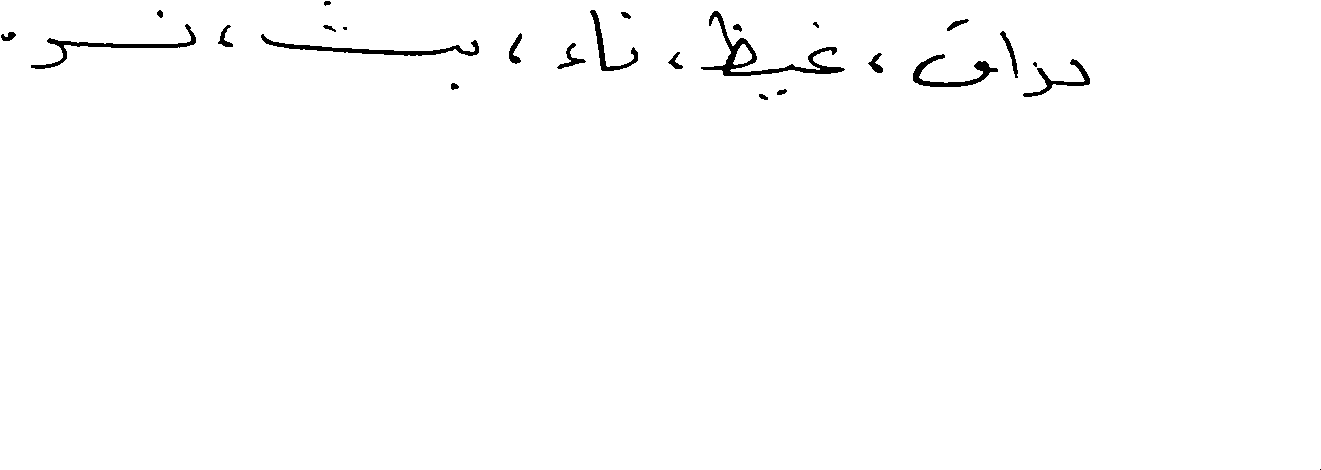 براق، غيظ، ناء، بث، نسر.